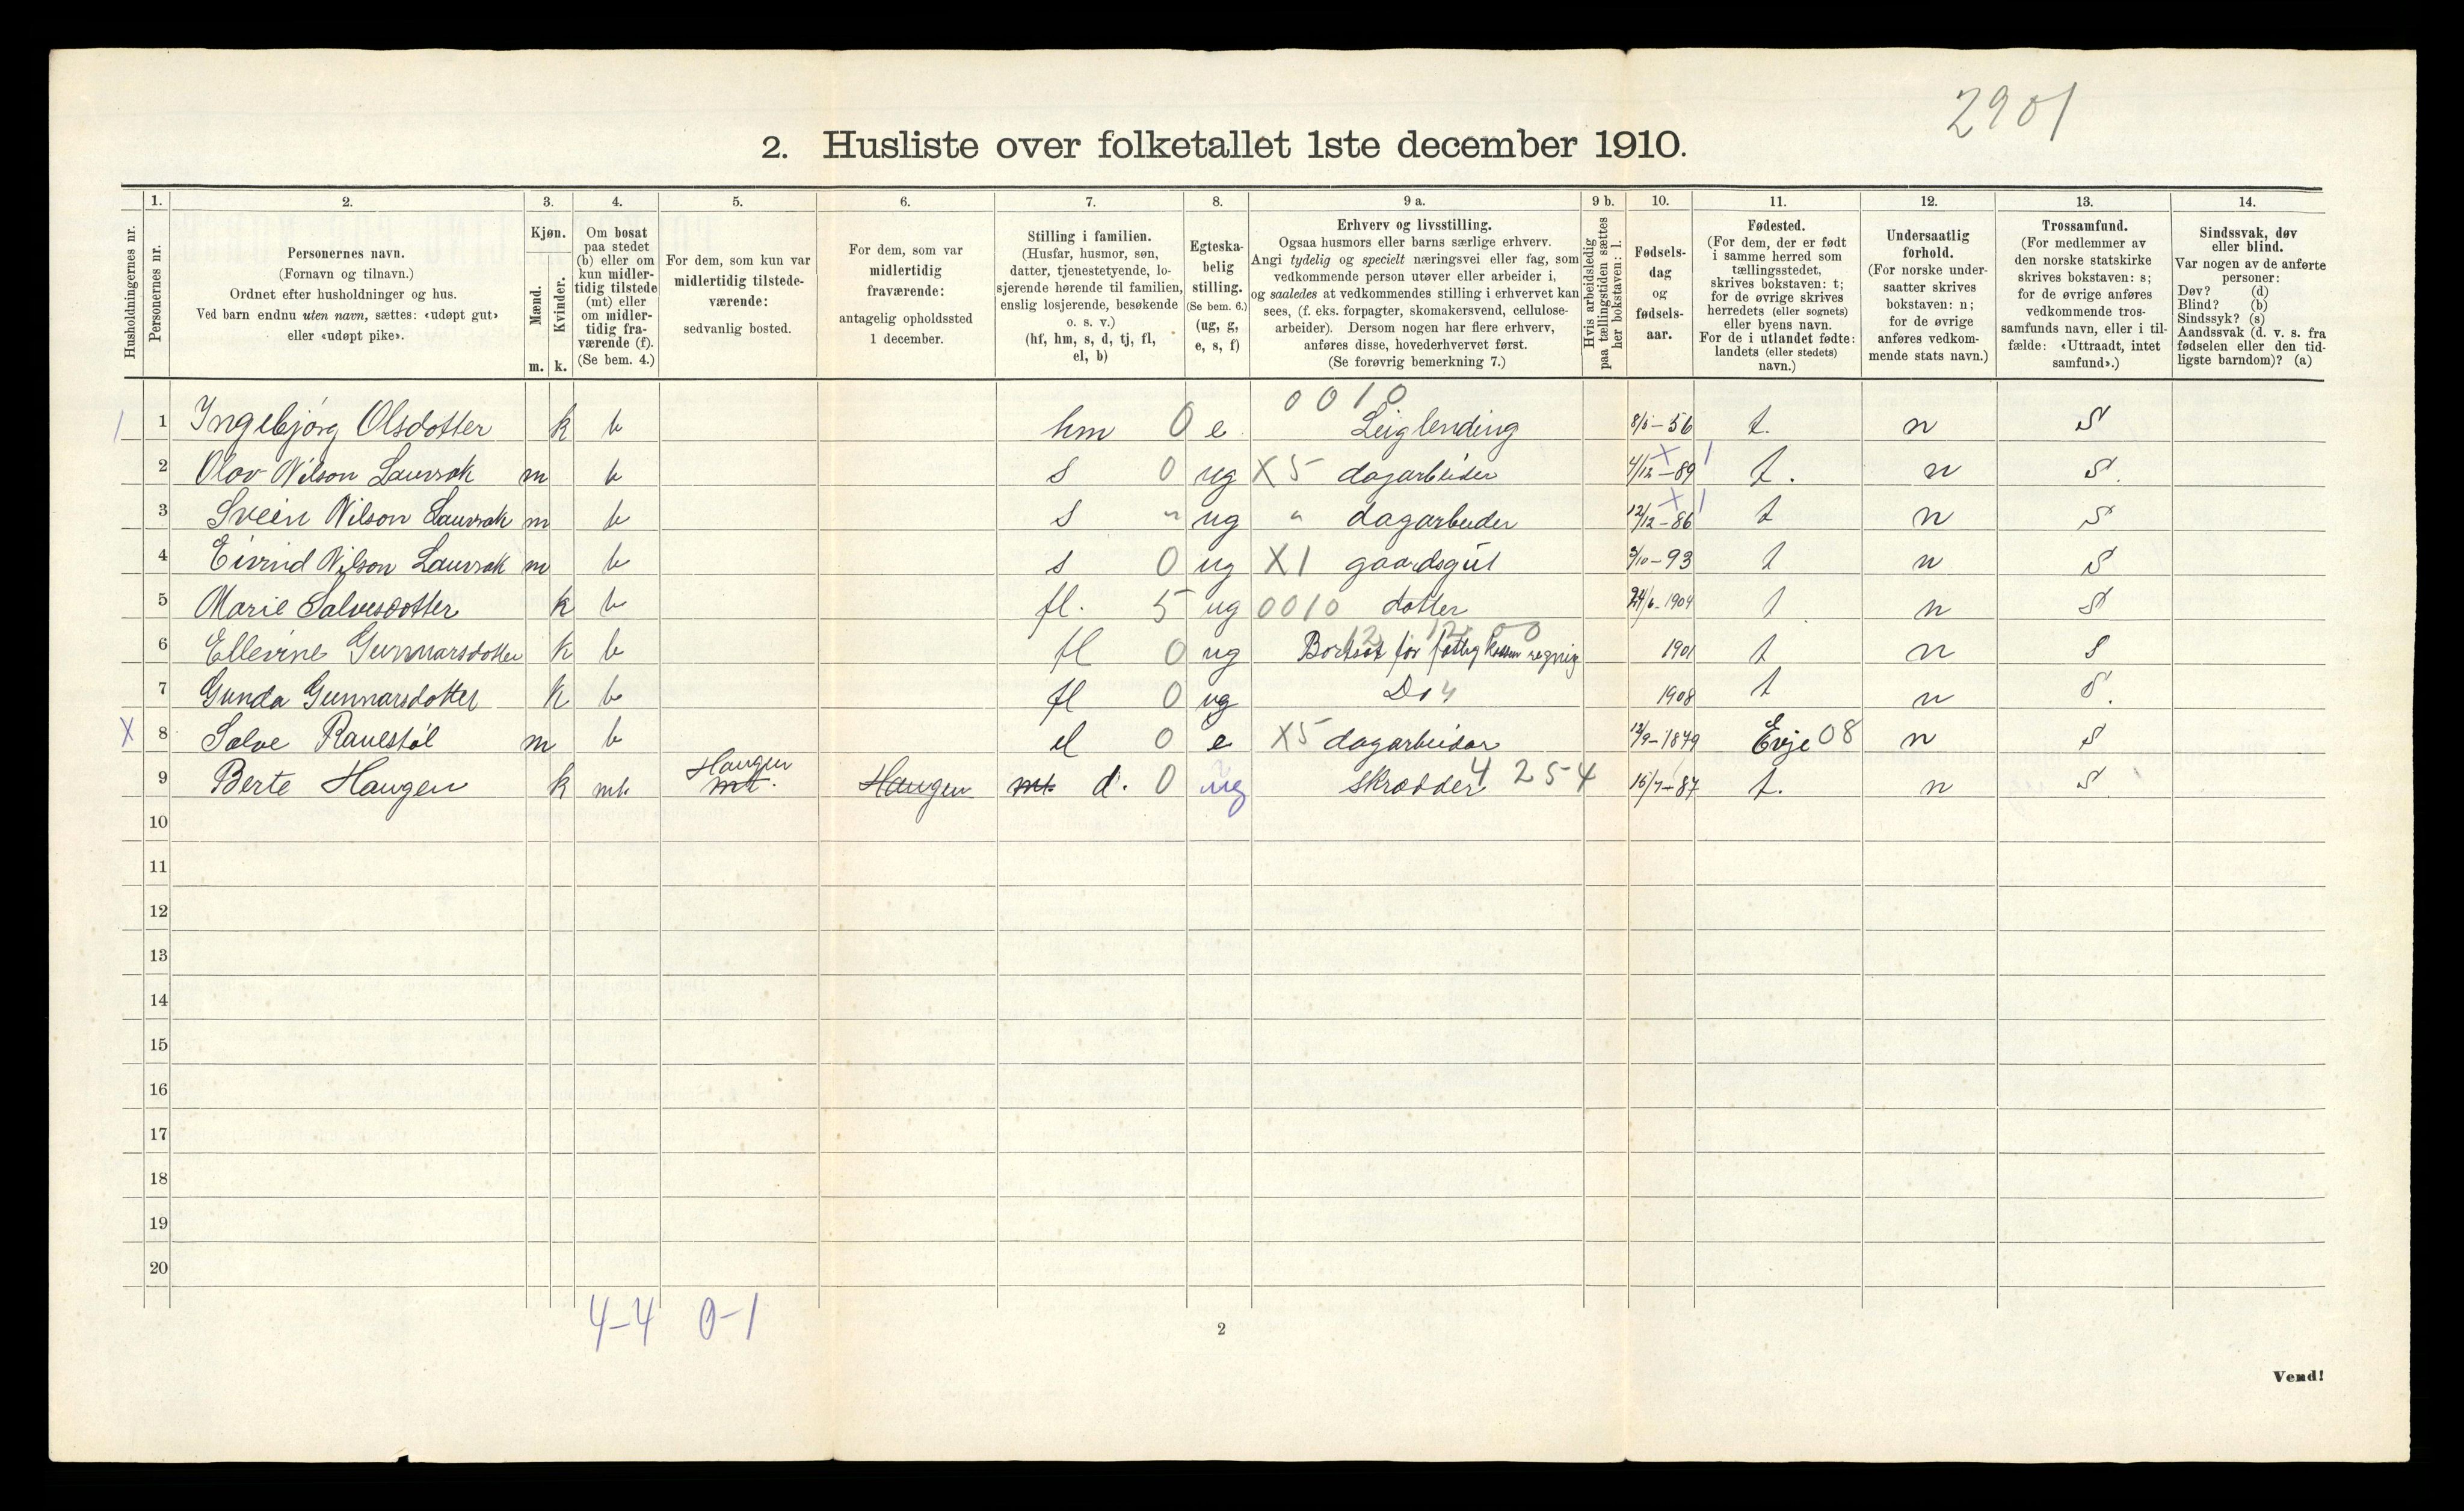 2901
2. Husliste over folketallet 1ste december 1910.
Husholdningernes nr.
1.
Personernes nr.
2.
Personernes navn.
(Fornavn og tilnavn.)
Ordnet efter husholdninger og hus.
Ved barn endnu uten navn, sættes: «udøpt gut»
eller «udøpt pike».
3.
Kjøn.
Mænd.
Kvinder.
m. k.
4.
Om bosat
paa stedet
(b) eller om
kun midler-
tidig tilstede
(mt) eller
om midler-
tidig fra-
værende (f).
(Se bem. 4.)
5.
For dem, som kun var
midlertidig tilstede-
værende:
sedvanlig bosted.
6.
For dem, som var
midlertidig
fraværende:
antagelig opholdssted
1 december.
7.
Stilling i familien.
(Husfar, husmor, søn,
datter, tjenestetyende, lo-
sjerende hørende til familien,
enslig losjerende, besøkende
o. s. v.)
(hf, hm, s, d, tj, fl,
el, b)
8.
Egteska-
belig
stilling.
(Se bem. 6.)
(ug, g,
e, s, f)
9 a.
Erhverv og livsstilling.
Ogsaa husmors eller barns særlige erhverv.
Angi tydelig og specielt næringsvei eller fag, som
vedkommende person utøver eller arbeider i,
og saaledes at vedkommendes stilling i erhvervet kan
sees, (f. eks. forpagter, skomakersvend, cellulose-
arbeider). Dersom nogen har flere erhverv,
anføres disse, hovederhvervet først.
(Se forøvrig bemerkning 7.)
9 b.
Hvis arbeidsledig
paa tællingstiden sættes
her bokstaven: l.
10.
Fødsels-
dag
og
fødsels-
aar.
11.
Fødested.
(For dem, der er født
i samme herred som
tællingsstedet,
skrives bokstaven: t;
for de øvrige skrives
herredets (eller sognets)
eller byens navn.
For de i utlandet fødte:
landets (eller stedets)
navn.)
12.
Undersaatlig
forhold.
(For norske under-
saatter skrives
bokstaven: n;
for de øvrige
anføres vedkom-
mende stats navn.)
13.
Trossamfund.
(For medlemmer av
den norske statskirke
skrives bokstaven: s;
for de øvrige anføres
vedkommende tros-
samfunds navn, eller i til-
fælde: «Uttraadt, intet
samfund».)
14.
Sindssvak, døv
eller blind.
Var nogen av de anførte
personer:
Døv? (d)
Blind? (b)
Sindssyk? (s)
Aandssvak (d. v. s. fra
fødselen eller den tid-
ligste barndom)? (a)
0 0 1 0
1 1 Ingebjørg Olsdotter k b hm 0 e Leiglending -56 t. n S
2 Olov Nilson Lauvrak m b s 0 ug X5 dagarbeider 4/12-89 t. n S.
3 Svein Nilson Lauvrak m b s " ug " dagarbeider 12/12-86 t n S
4 Eivind Nilson Lauvrak m b s 0 ug X1 gaardsgut 3/10-93 t n S
5 Marie Salvesdotter k b fl. 5 ug 0010 dotter 24/6-1904 t n S
6 Ellevine Gunnarsdotter k b fl 0 ug Bortsat for fattig kassens regning 1901 t n S
7 Gunda Gunnarsdotter k b fl 0 ug Do 4 1908 t n S.
X 8 Salve Ravestøl m b el 0 e X5 dagarbeidar 12/9-1879 Evje 08 n S
9 Berte Haugen k mt Haugen mt. Haugen mt. d. 0 ug skrædder 4 254 16/7-87 t. n S.
10
11
12
13
14
15
16
17
18
19
20
4-4 0-1
2
Vend!